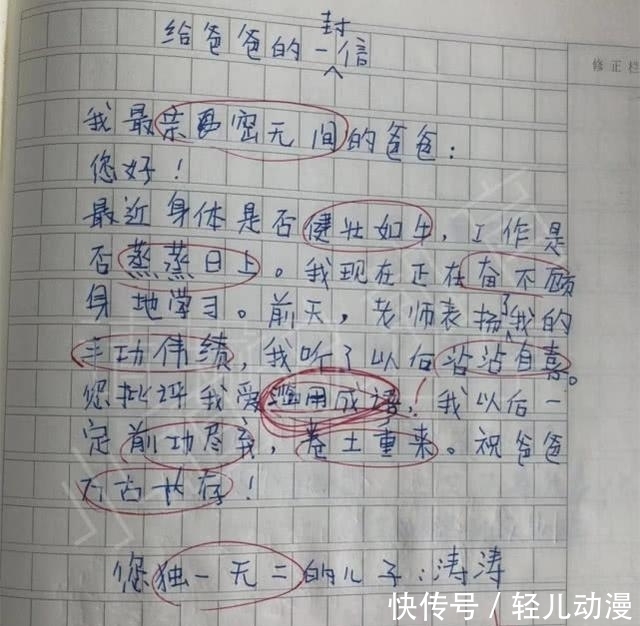 给爸爸的一封信
修正栏
我最亲密无间的爸爸：
您好！
最近身体是否健壮如牛，工作是
否蒸蒸日上。我现在正在奋不顾
身地学习。前天，老师表扬了我的
丰功伟绩，我听了以后沾沾自喜。
您批评我爱滥用成语，！我以后一
定前功尽弃，卷土重来。祝爸爸
万古长存！
您独一无二的儿子：涛涛
快传号／轻儿动漫